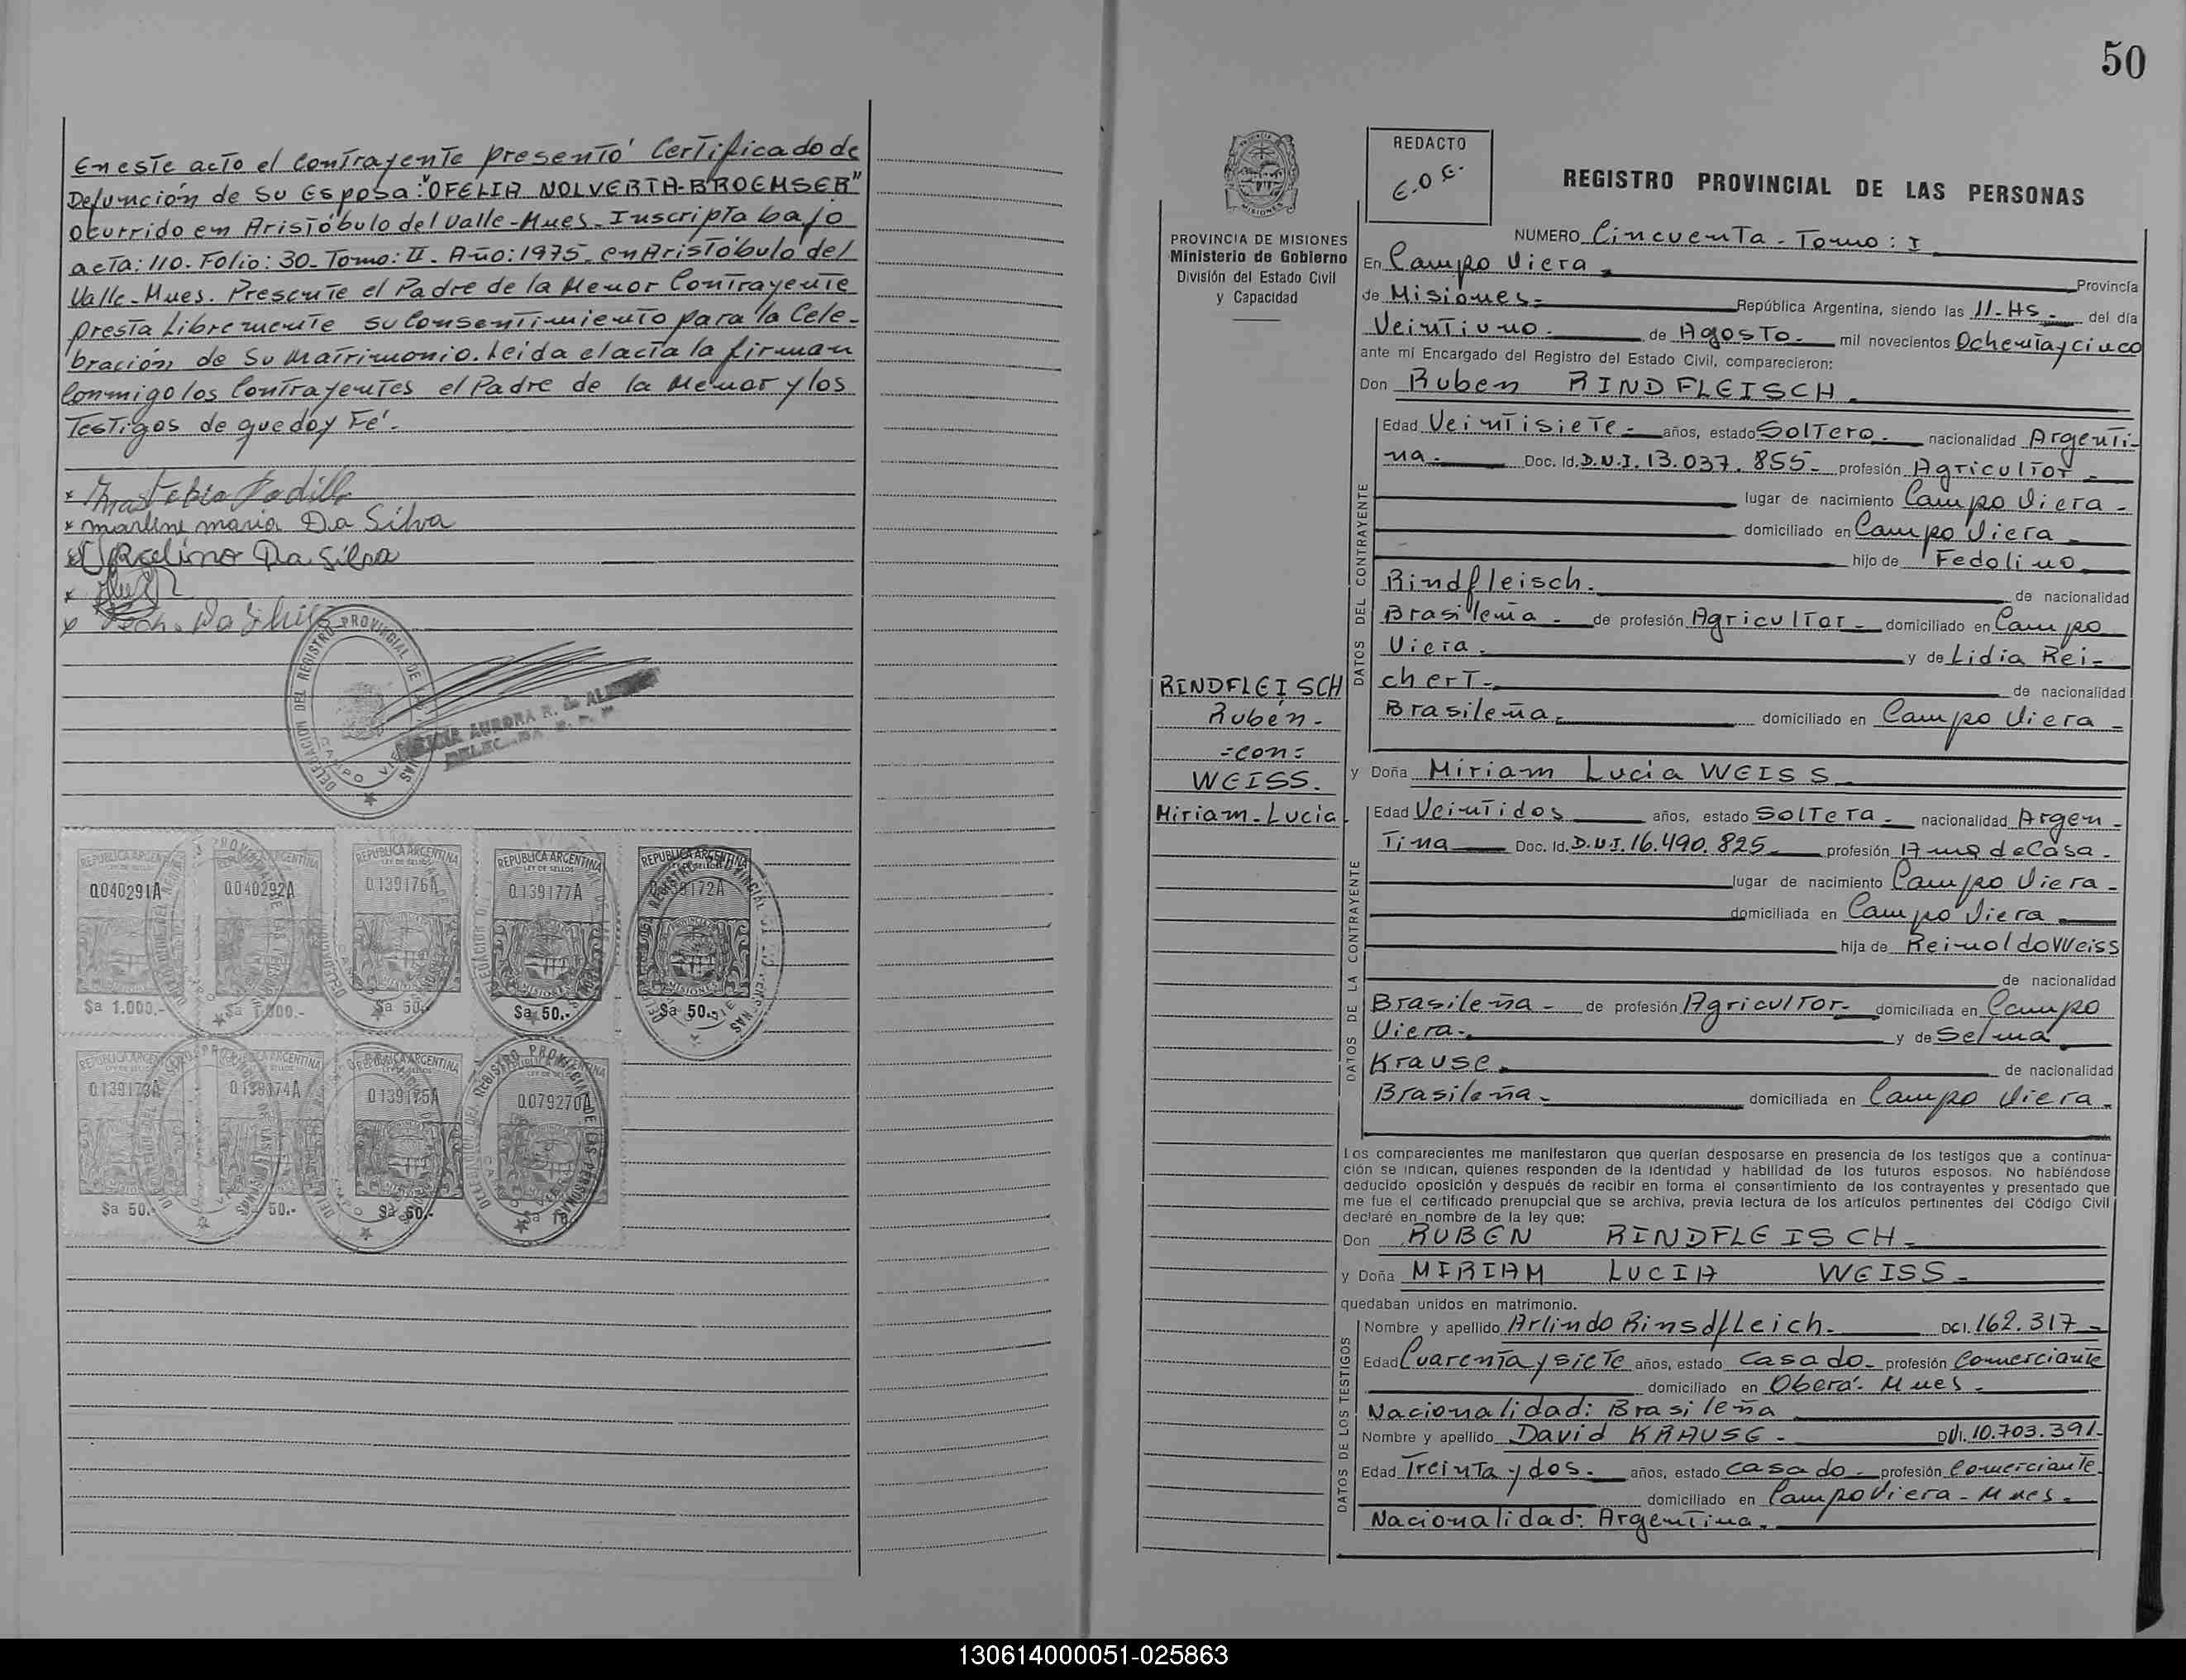 En este acto el Contrayente presentó Certificado de
Defunción de Su Esposa: "OFELIA NOLVERTA-BROEMSER"
Ocurrido en Aristóbulo del Valle-Mnes. Inscripta bajo
acta: 110. Folio: 30. Tomo: II. Año: 1975. en Aristóbulo del
Valle-Mnes. Presente el Padre de la Menor Contrayente
presta Libremente su Consentimiento para la Cele-
bración de Su Matrimonio. Leida el acta la firman
Conmigo los Contrayentes el Padre de la Menor y los
Testigos de que doy Fé.
x Padilla
x marlene maria Da Silva
Da Silva
x
x Da Silva
DELEGACION DEL REGISTRO PROVINCIAL DE LAS PERSONAS
CAMPO VIERA
AURORA R. de
DELEGADA
REPUBLICA ARGENTINA
LEY DE SELLOS
0.040291A
$a 1.000.-
REPUBLICA ARGENTINA
0.040292A
$a 1.000.-
REPUBLICA ARGENTINA
LEY DE SELLOS
0.139176A
$a 50.-
REPUBLICA ARGENTINA
LEY DE SELLOS
0.139177A
MISIONES
$a 50.-
REPUBLICA ARGENTINA
172A
MISIONES
$a 50.-
REPUBLICA ARGENTINA
0.139173A
$a 50.-
ARGENTINA
0.139174A
50.-
REPUBLICA ARGENTINA
0.139175A
$a 50.-
0.079270A
50
PROVINCIA DE MISIONES
Ministerio de Gobierno
División del Estado Civil
y Capacidad
RINDFLEISCH
Rubén.-
=con=
WEISS.
Miriam-Lucia
REDACTO
E.O.E.
REGISTRO PROVINCIAL DE LAS PERSONAS
NUMERO Cincuenta - Tomo: I
En Campo Viera. Provincia
de Misiones.- República Argentina, siendo las 11-HS. del día
Veintiuno. de Agosto. mil novecientos Ochenta y cinco
ante mí Encargado del Registro del Estado Civil, comparecieron:
Don Ruben RINDFLEISCH.
DATOS DEL CONTRAYENTE
Edad Veintisiete. años, estado Soltero. nacionalidad Argenti-
na. Doc. Id. D.N.I. 13.037.855- profesión Agricultor-
lugar de nacimiento Campo Viera-
domiciliado en Campo Viera
hijo de Fedolino
Rindfleisch. de nacionalidad
Brasileña- de profesión Agricultor- domiciliado en Campo
Viera. y de Lidia Rei-
chert- de nacionalidad
Brasileña. domiciliado en Campo Viera-
y Doña Miriam Lucia WEISS
DATOS DE LA CONTRAYENTE
Edad Veintidos años, estado Soltera- nacionalidad Argen-
tina Doc. Id. D.N.I. 16.490.825- profesión Ama de Casa.
lugar de nacimiento Campo Viera-
domiciliada en Campo Viera
hija de Reinoldo Weiss
de nacionalidad
Brasileña- de profesión Agricultor- domiciliada en Campo
Viera- y de Selma
Krause. de nacionalidad
Brasileña- domiciliada en Campo Viera.
Los comparecientes me manifestaron que querían desposarse en presencia de los testigos que a continua-
ción se indican, quienes responden de la identidad y habilidad de los futuros esposos. No habiéndose
deducido oposición y después de recibir en forma el consentimiento de los contrayentes y presentado que
me fue el certificado prenupcial que se archiva, previa lectura de los artículos pertinentes del Código Civil
declaré en nombre de la ley que:
Don RUBEN RINDFLEISCH-
y Doña MIRIAM LUCIA WEISS-
quedaban unidos en matrimonio.
DATOS DE LOS TESTIGOS
Nombre y apellido Arlindo Rinsdfleich- DCI. 162.317-
Edad Cuarenta y siete años, estado Casado- profesión Comerciante
domiciliado en Oberá- Mnes-
Nacionalidad: Brasileña
Nombre y apellido David KRAUSE- DNI. 10.703.391-
Edad Treinta y dos- años, estado Casado- profesión Comerciante
domiciliado en Campo Viera- Mnes-
Nacionalidad: Argentina.
130614000051-025863